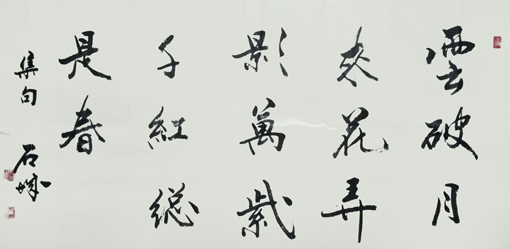 雲破月
來花弄
影萬紫
千紅総
是春
集句
石城